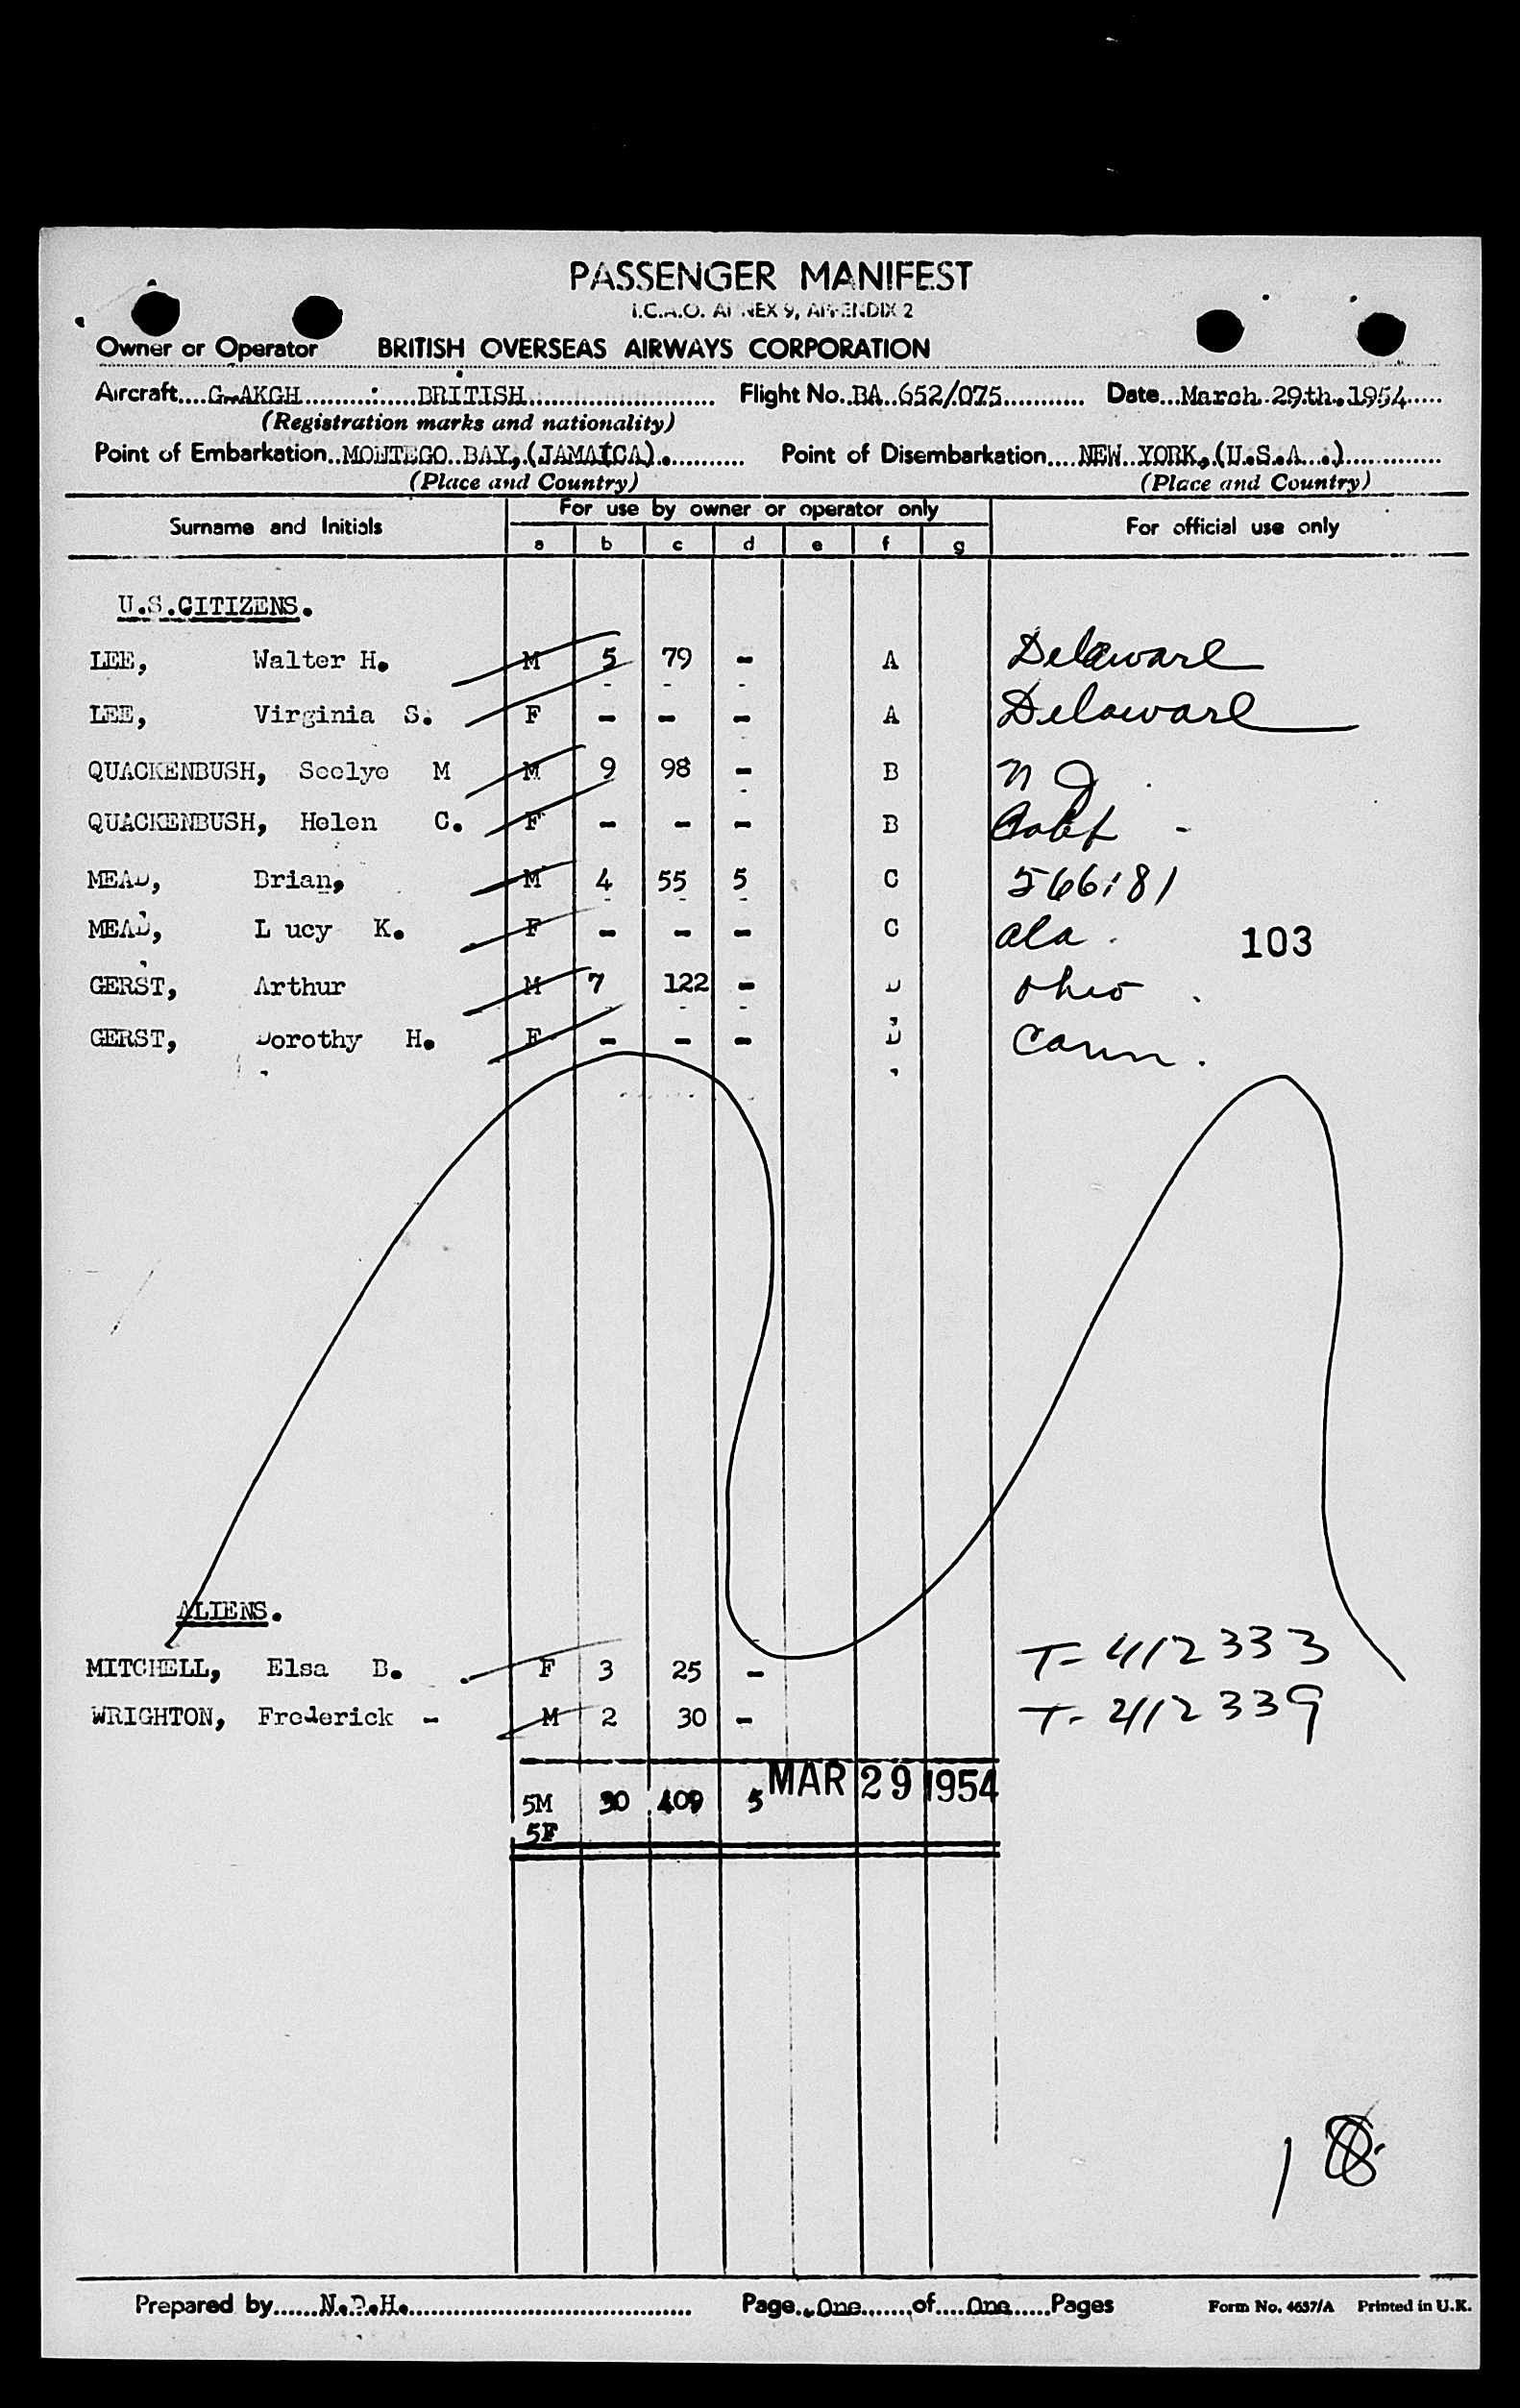 PASSENGER MANIFEST
I.C.A.O. ANNEX 9, APPENDIX 2
Owner or Operator BRITISH OVERSEAS AIRWAYS CORPORATION
Aircraft....G-AKGH..........:.....BRITISH........................ Flight No..BA..652/075........... Date...March.29th.,1954.....
(Registration marks and nationality)
Point of Embarkation..MONTEGO..BAY,.(JAMAICA)............ Point of Disembarkation....NEW..YORK,.(U.S.A...).............
(Place and Country) (Place and Country)
Surname and Initials For use by owner or operator only For official use only
a b c d e f g
U.S.CITIZENS.
LEE, Walter H. M 5 79 - A Delaware
LEE, Virginia S. F - - - A Delaware
QUACKENBUSH, Seelye M M 9 98 - B N J
QUACKENBUSH, Helen C. F - - - B
MEAD, Brian, M 4 55 5 C 566181
MEAD, L ucy K. F - - - C Ala. 103
GERST, Arthur M 7 122 - D Ohio .
GERST, Dorothy H. F - - - D Conn.
ALIENS.
MITCHELL, Elsa B. F 3 25 - T- 412333
WRIGHTON, Frederick - M 2 30 - T- 412339
MAR 29 1954
5M 30 409 5
5F
18
Prepared by......N.D.H........................................ Page..One.......of....One......Pages Form No. 4657/A Printed in U.K.